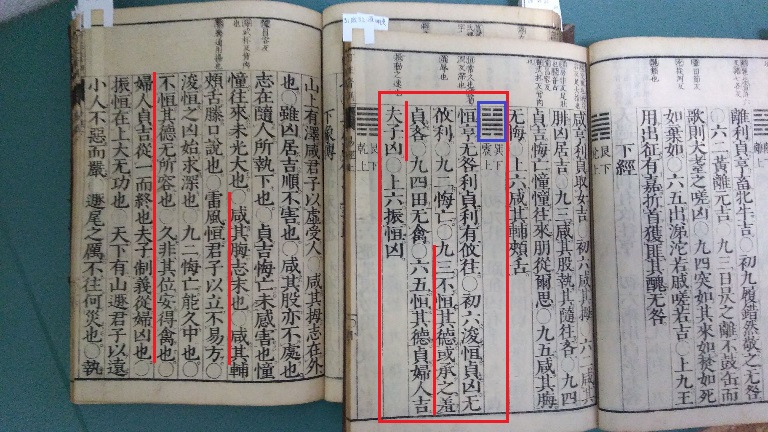 離利貞亨畜牝牛吉○初九履錯然敬之无咎
○六二黃離元吉○九三日昃之離不鼓缶而
歌則大耋之嗟凶○九四突如其來如焚如死
如棄如○六五出涕沱若戚嗟若吉○上九王
用出征有嘉折首獲匪其醜无咎
下經
艮下
兌上
咸亨利貞取女吉○初六咸其拇○六二咸其
腓凶居吉○九三咸其股執其隨往吝○九四
貞吉悔亡憧憧往來朋從爾思○九五咸其脢
无悔○上六咸其輔頰舌
巽下
震上
恒亨无咎利貞利有攸往○初六浚恒貞凶无
攸利○九二悔亡○九三不恒其德或承之羞
貞吝○九四田无禽○六五恒其德貞婦人吉
夫子凶○上六振恒凶
艮下
乾上
下象傳
山上有澤咸君子以虛受人○咸其拇志在外
也○雖凶居吉順不害也○咸其股亦不處也
志在隨人所執下也○貞吉悔亡未感害也憧
憧往來未光大也○咸其脢志末也○咸其輔
頰舌滕口說也○雷風恒君子以立不易方○
浚恒之凶始求深也○九二悔亡能久中也○
不恒其德无所容也○久非其位安得禽也○
婦人貞吉從一而終也夫子制義從婦凶也○
振恒在上大无功也○天下有山遯君子以遠
小人不惡而嚴○遯尾之厲不往何災也○執